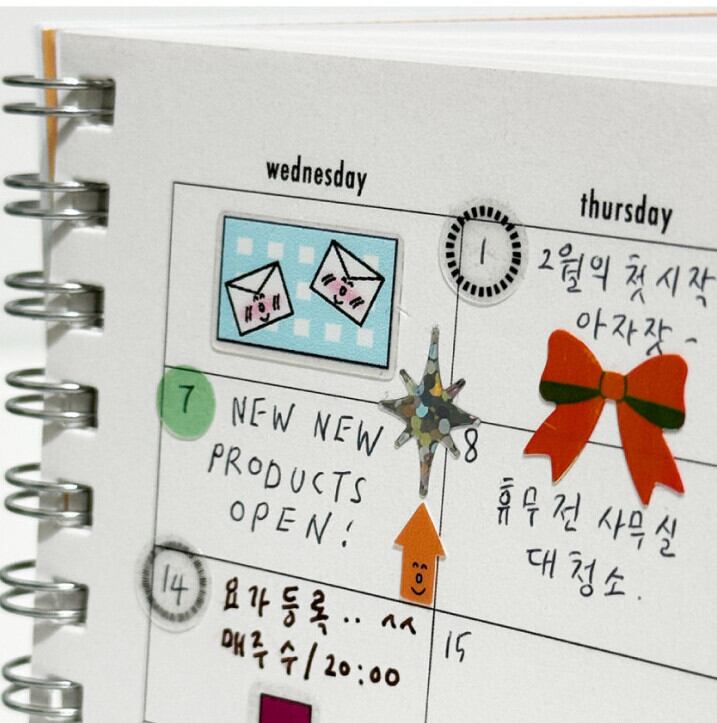 wednesday
thursday
1
2월의 첫 시작
아자잣~
7
NEW NEW
PRODUCTS
OPEN!
8
휴무 전 사무실
대청소.
14
요가 등록.. ^^
매주 수/20:00
15